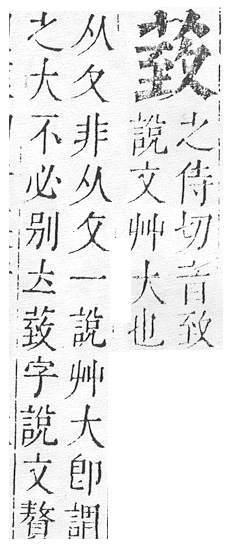 䓌
之侍切音致
說文艸大也
从夂非从攵一說艸大即謂
之大不必别立䓌字說文贅